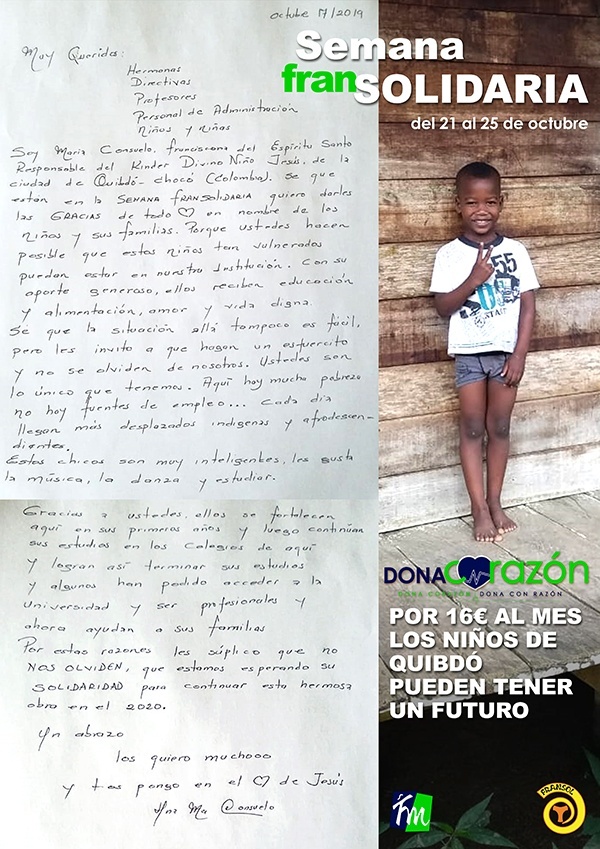 Octubre 17/2019
Muy Queridos:
Hermanas
Directivas
Profesores
Personal de Administración
Niños y niñas
Soy Maria Consuelo, franciscana del Espíritu Santo
Responsable del Kinder Divino Niño Jesús, de la
ciudad de Quibdó - Chocó (Colombia). Se que
están en la SEMANA FRANSOLIDARIA quiero darles
las GRACIAS de todo ♡ en nombre de los
niños y sus familias. Porque ustedes hacen
posible que estos niños tan vulnerados
puedan estar en nuestra Institución. Con su
aporte generoso, ellos reciben educación
y alimentación, amor y vida digna.
Se que la situación allá tampoco es fácil,
pero les invito a que hagan un esfuercito
y no se olviden de nosotros. Ustedes son
lo único que tenemos. Aquí hay mucha pobreza
no hay fuentes de empleo... Cada día
llegan más desplazados indígenas y afrodescen-
dientes.
Estos chicos son muy inteligentes, les gusta
la música, la danza y estudiar.
Gracias a ustedes, ellos se fortalecen
aquí en sus primeros años y luego continúan
sus estudios en los Colegios de aquí
y logran así terminar sus estudios
y algunos han podido acceder a la
Universidad y ser profesionales y
ahora ayudan a sus familias
Por estas razones les súplico que no
NOS OLVIDEN, que estamos esperando su
SOLIDARIDAD para continuar esta hermosa
obra en el 2020.
Un abrazo
los quiero muchooo
y los pongo en el ♡ de Jesús
Hna Ma Consuelo
Semana
franSOLIDARIA
del 21 al 25 de octubre
55
DONACorazón
DONA CORAZÓN DONA CON RAZÓN
POR 16€ AL MES
LOS NIÑOS DE
QUIBDÓ
PUEDEN TENER
UN FUTURO
fm
FRANSOL